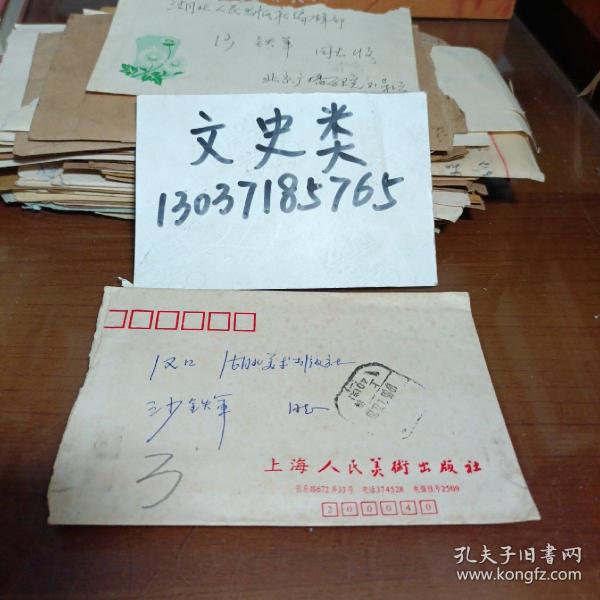 湖北人民出版社编辑部
沙 铁军 同志收
文史类
13037185765
汉口 湖北美术出版社
沙铁军 同志
上海人民美術出版社
长乐路672弄33号 电话374528 电报挂号2509
200040
孔夫子旧书网
www.kongfz.com